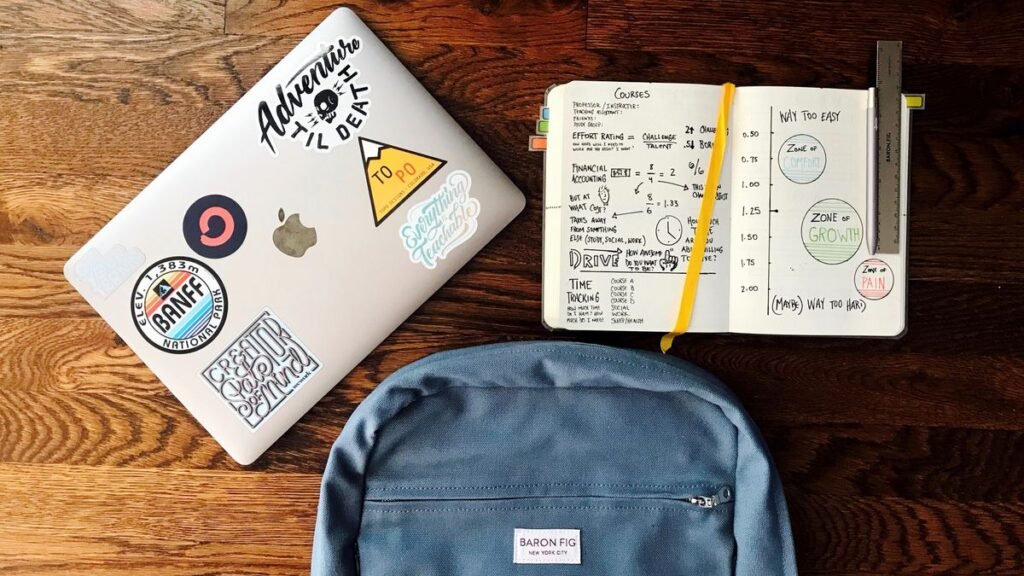 Adventure
TIL DEATH
TO
PO
Everything
Teachable
ELEV. 1,383m
BANFF
NATIONAL PARK
CREATOR
Peace
of mind
COURSES
PROFESSOR / INSTRUCTOR:
TEACHING ASSISTANT:
FRIENDS:
STUDY GROUP:
EFFORT RATING = CHALLENGE
TALENT
FINANCIAL
ACCOUNTING
= 8/4 = 2
6/6
BUT AT
WHAT COST?
8/6 = 1.33
TAKES AWAY
FROM SOMETHING
ELSE (STUDY, SOCIAL, WORK)
DRIVE
HOW AWESOME
DO YOU WANT
TO BE?
TIME
TRACKING
COURSE A
COURSE B
COURSE C
COURSE D
SOCIAL
WORK
SLEEP/HEALTH
WAY TOO EASY
0.50
0.75
1.00
1.25
1.50
1.75
2.00
ZONE OF
COMFORT
ZONE OF
GROWTH
ZONE OF
PAIN
(MAYBE) WAY TOO HARD
BARON FIG
BARON FIG
NEW YORK CITY